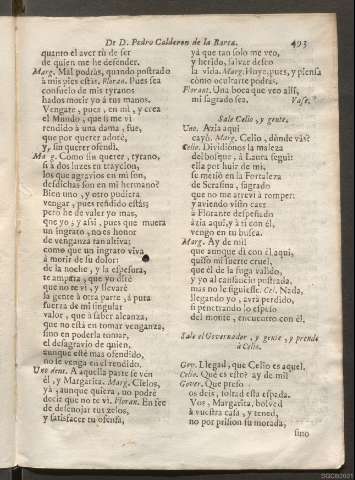 De D. Pedro Calderon de la Barca. 493
quanto el aver tù de ser
de quien me he defender.
Marg. Mal podràs, quando postrado
à mis pies estàs. Floran. Pues sea
consuelo de mis tyranos
hados morir yo à tus manos.
Vengate, pues, en mi, y crea
el Mundo, que si me vi
rendido à una dama, fue,
que por querer adorè,
y sin querer ofendi.
Marg. Como sin querer, tyrano,
si à dos luzes en trayciou,
los que agravios en mi son,
desdichas son en mi hermano?
Bien uno, y otro pudiera
vengar, pues rendido estàs;
pero he de valer yo mas,
que yo; y assi, pues que muera
un ingrato, no es honor
de venganza tan altiva;
como que un ingrato viva
à morir de su dolor:
de la noche, y la espesura,
te ampara, que yo dirè
que no te vi, y llevarè
la gente à otra parte, à pura
fuerza de mi singular
valor, que à saber alcanza,
que no està en tomar venganza,
sino en poderla tomar,
el desagravio de quien,
aunque estè mas ofendido,
no se venga en el rendido.
Uno dent. A aquella parte se ven
èl, y Margarita. Marg. Cielos,
yà, aunque quiera, no podrè
decir que no te vi. Floran. En fee
de desenojar tus zelos,
y satisfacer tu ofensa,
yà que tan solo me veo,
y herido, salvar desseo
la vida. Marg. Huye, pues, y piensa
còmo ocultarte podràs.
Florant. Una boca que veo allì,
mi sagrado sea. Vase.
Sale Celio, y gente.
Uno. Àzia aqui
cayò. Marg. Celio, dònde vàs?
Celio. Dividiònos la maleza
del bosque, à Laura seguì:
ella por huir de mi,
se metiò en la Fortaleza
de Serafina, sagrado
que no me atrevì à romper:
y aviendo visto caer
à Florante despeñado
àzia aqui, y à ti con èl,
vengo en tu busca.
Marg. Ay de mi!
que aunque di con èl aqui,
quiso mi suerte cruel,
que èl de la fuga valido,
y yo al cansancio postrada,
mas no le siguiesse. Cel. Nada,
llegando yo, avrà perdido,
si penetrando lo espeso
del monte, encuentro con èl.
Sale el Governador, y gente, y prende
à Celio.
Gov. Llegad, que Celio es aquel.
Celio. Què es esto? ay de mi!
Gover. Que preso
os deis, soltad essa espada.
Vos, Margarita, bolved
à vuestra casa, y tened,
no por prision su morada,
sino